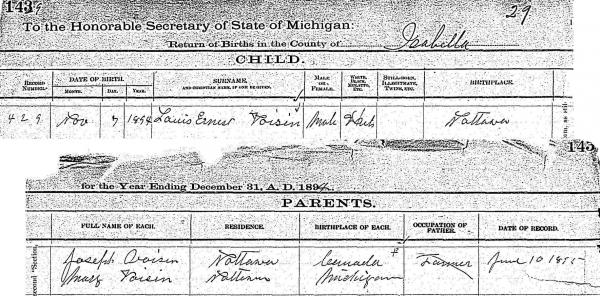 143
29
To the Honorable Secretary of State of Michigan:
Return of Births in the County of Isabella
CHILD.
RECORD NUMBER. DATE OF BIRTH. SURNAME, AND CHRISTIAN NAME, IF ONE BE GIVEN. MALE OR FEMALE. WHITE, BLACK, MULATTO, ETC. STILL-BORN, ILLEGITIMATE, TWINS, ETC. BIRTHPLACE.
MONTH. DAY. YEAR.
429 Nov 7 1894 Louis Ernest Voisin Male White Nottawa
145
for the Year Ending December 31, A. D. 1894.
PARENTS.
FULL NAME OF EACH. RESIDENCE. BIRTHPLACE OF EACH. OCCUPATION OF FATHER. DATE OF RECORD.
Joseph Voisin Nottawa Canada Farmer June 10 1895
Mary Voisin Nottawa Michigan